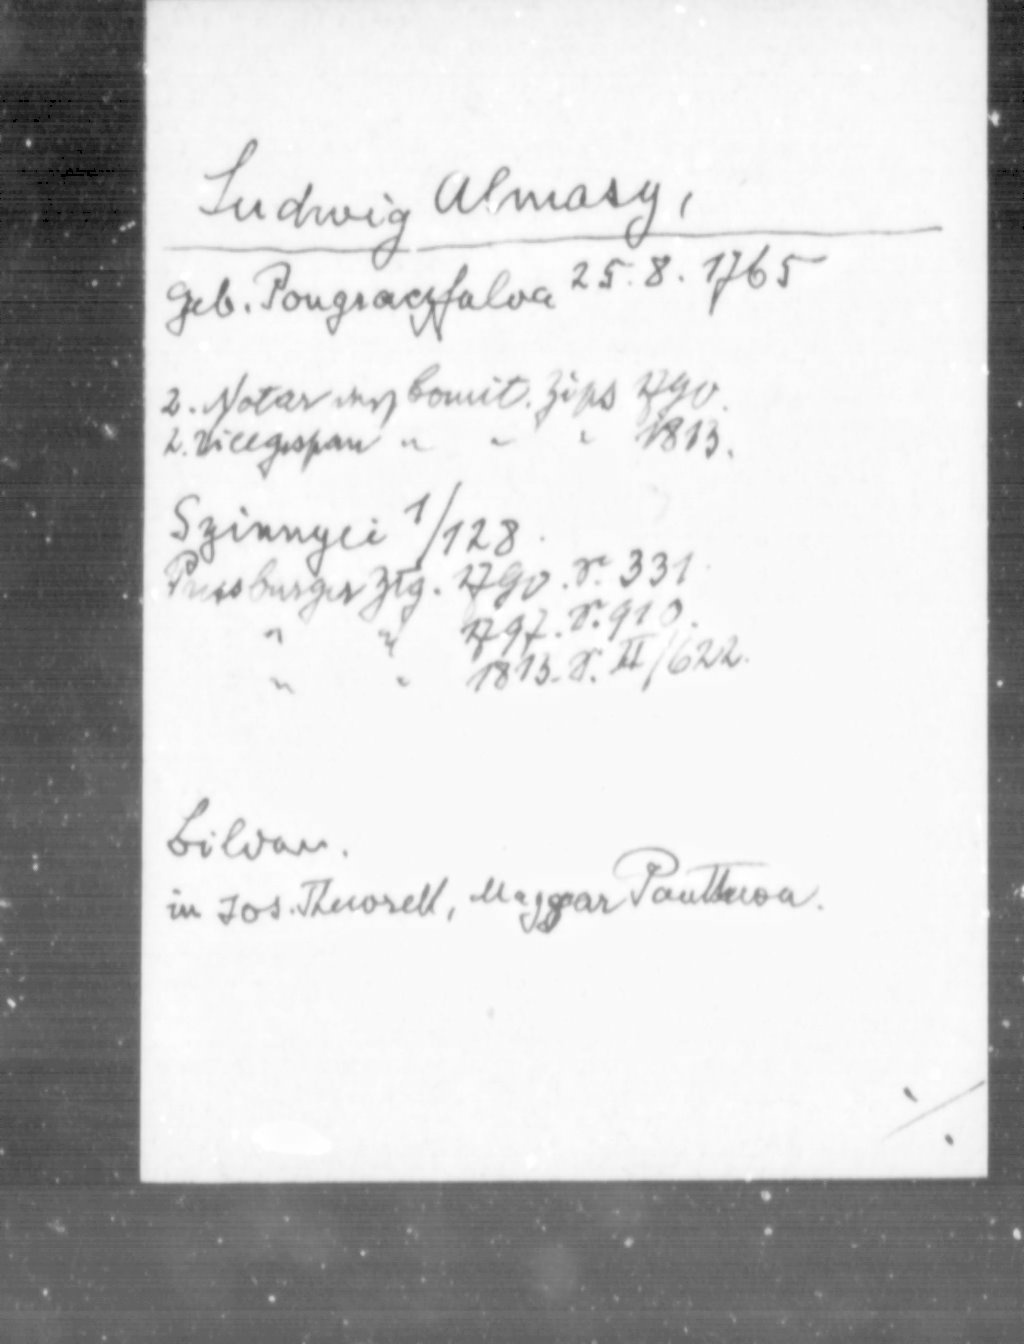 Ludwig Almasy,
geb. Pongraczfalva 25. 8. 1765
2. Notar im Comit. Zips 1790.
2. Vicegespan " " " 1813.
Szinnyei 1/128.
Pressburger Ztg. 1790. S. 331
" " 1797. S. 910.
" " 1813. S. II/622.
in Jos. Theworek, Magyar Pantheon.